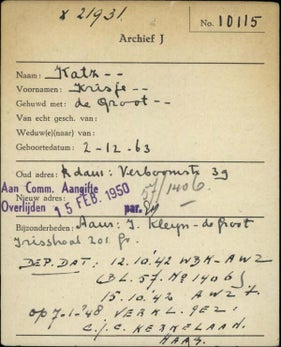 x 21931.
No. 10115
Archief J
Naam: Katz --
Voornamen: Krisje --
Gehuwd met: de Groot --
Van echt gesch. van:
Weduw(e)(naar) van:
Geboortedatum: 2-12-63
Oud adres: Adam: Verboomstr 39
57/1406.
Nieuw adres:
Aan Comm. Aangifte
Overlijden 15 FEB. 1950 par.
Bijzonderheden: Aanv: J. Kleyn-de Groot
201
DEP. DAT: 12.10.42 WBK-AWZ
(BL. 57. No 1406)
15.10.42 AWZ 7.
OP 7-1-'48 VERKL. GEZ:
C.J.C. KERKELAAN.
HAAG.